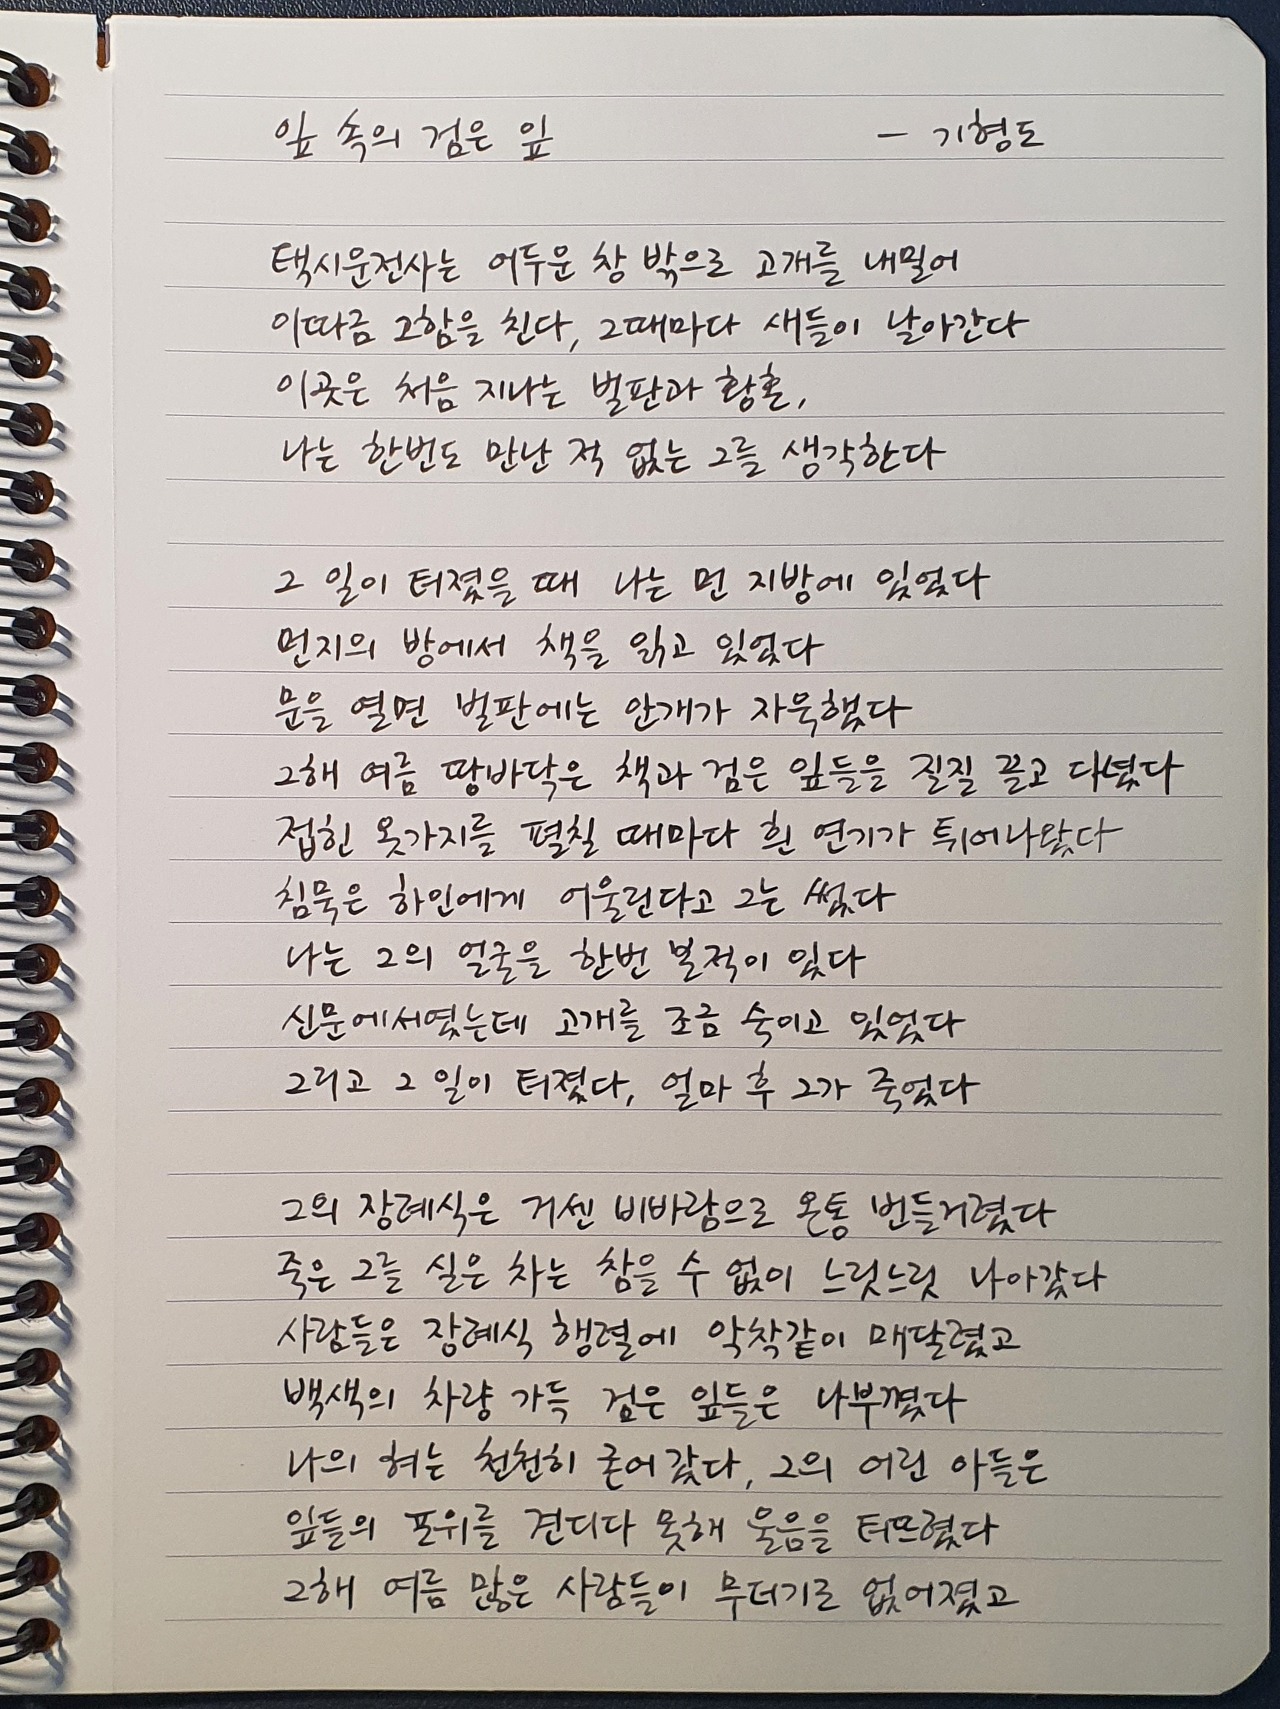 잎 속의 검은 잎 - 기형도
택시운전사는 어두운 창 밖으로 고개를 내밀어
이따금 고함을 친다, 그때마다 새들이 날아간다
이곳은 처음 지나는 벌판과 황혼,
나는 한번도 만난 적 없는 그를 생각한다
그 일이 터졌을 때 나는 먼 지방에 있었다
먼지의 방에서 책을 읽고 있었다
문을 열면 벌판에는 안개가 자욱했다
그해 여름 땅바닥은 책과 검은 잎들을 질질 끌고 다녔다
접힌 옷가지를 펼칠 때마다 흰 연기가 튀어나왔다
침묵은 하인에게 어울린다고 그는 썼다
나는 그의 얼굴을 한번 본적이 있다
신문에서였는데 고개를 조금 숙이고 있었다
그리고 그 일이 터졌다, 얼마 후 그가 죽었다
그의 장례식은 거센 비바람으로 온통 번들거렸다
죽은 그를 실은 차는 참을 수 없이 느릿느릿 나아갔다
사람들은 장례식 행렬에 악착같이 매달렸고
백색의 차량 가득 검은 잎들은 나부꼈다
나의 혀는 천천히 굳어갔다, 그의 어린 아들은
잎들의 포위를 견디다 못해 울음을 터뜨렸다
그해 여름 많은 사람들이 무더기로 없어졌고